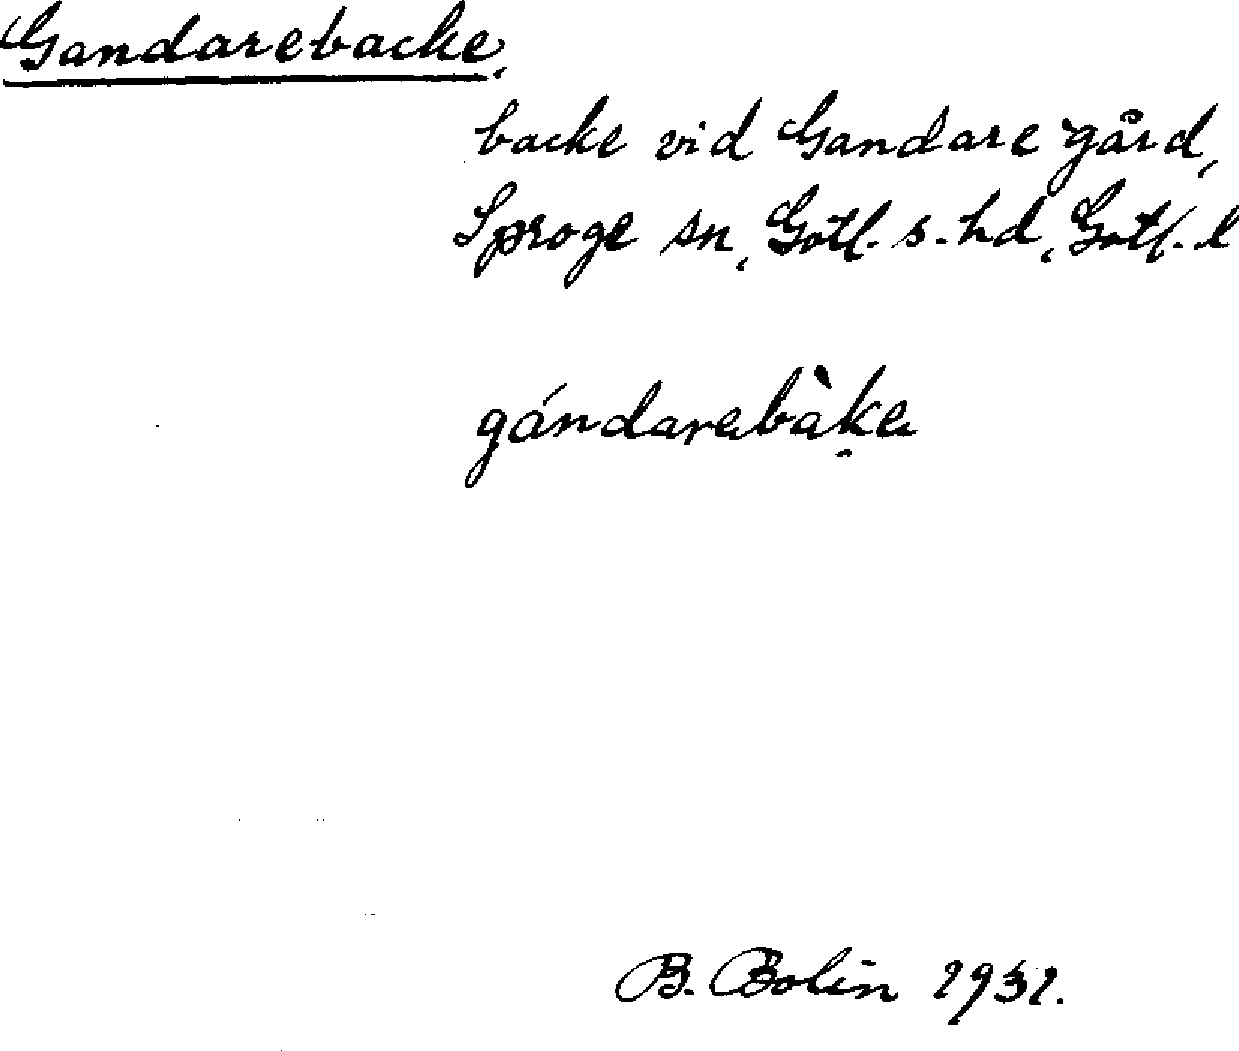 Gandarebacke,
backe vid Gandare gård,
Sproge sn, Gotl. s. hd, Gotl. l
gándarebàke
B. Bolin 1931.